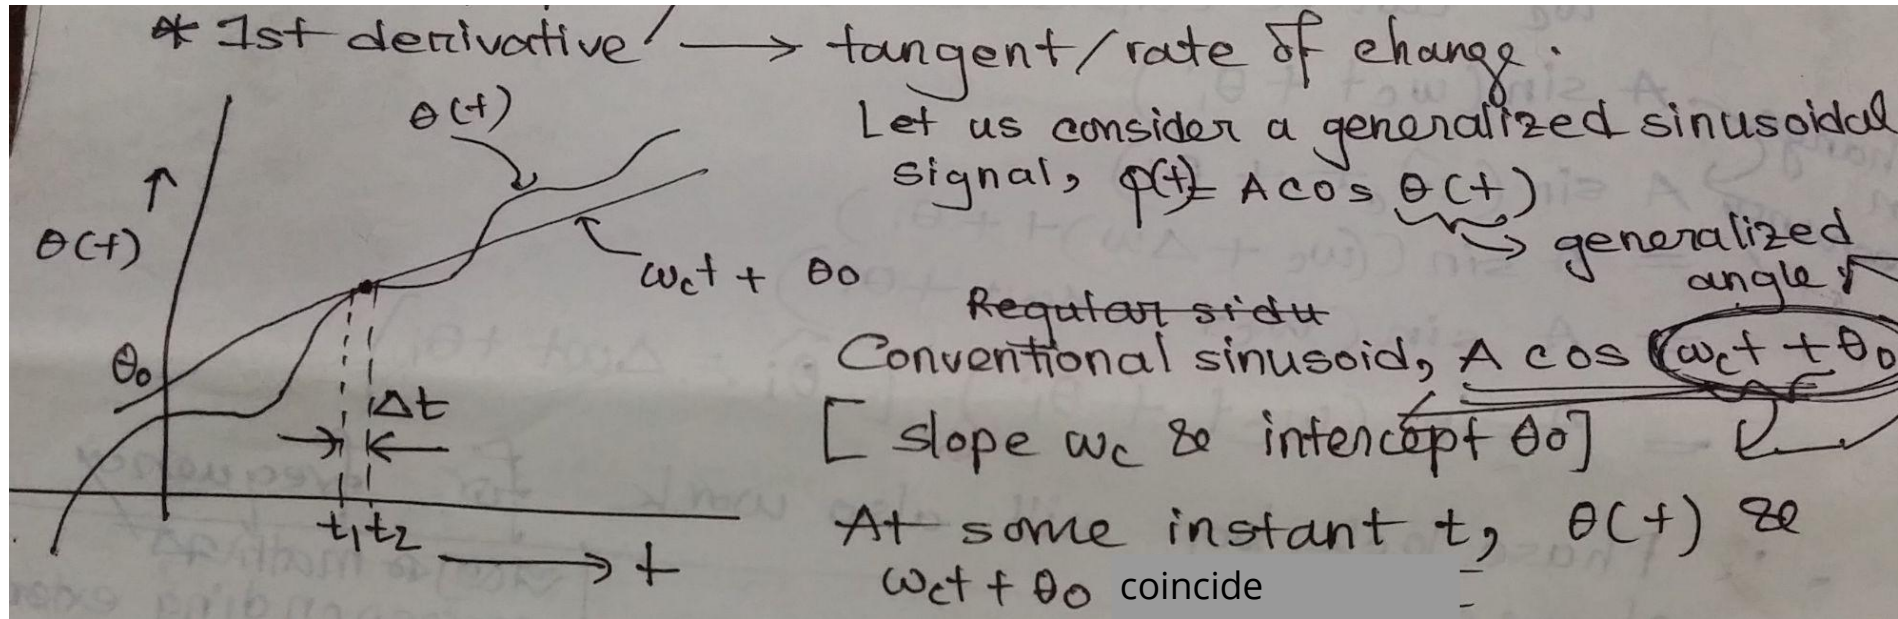 * 1st derivative → tangent/rate of change.
Let us consider a generalized sinusoidal
signal, φ(t) = A cos θ(t)
→ generalized
angle
θ(t)
θ(t)
ωct + θ0
θ0
Δt
t1 t2
→ t
Regular sidu
Conventional sinusoid, A cos (ωct + θ0
[ slope ωc & intercept θ0]
At some instant t, θ(t) &
ωct + θ0 coincide